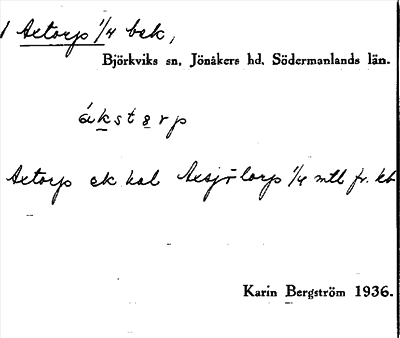 1 Axtorp 1/4 bsk,
Björkviks sn, Jönåkers hd, Södermanlands län.
ákstərp
Axtorp ek kal Axsjötorp 1/4 mtl fr. kb
Karin Bergström 1936.